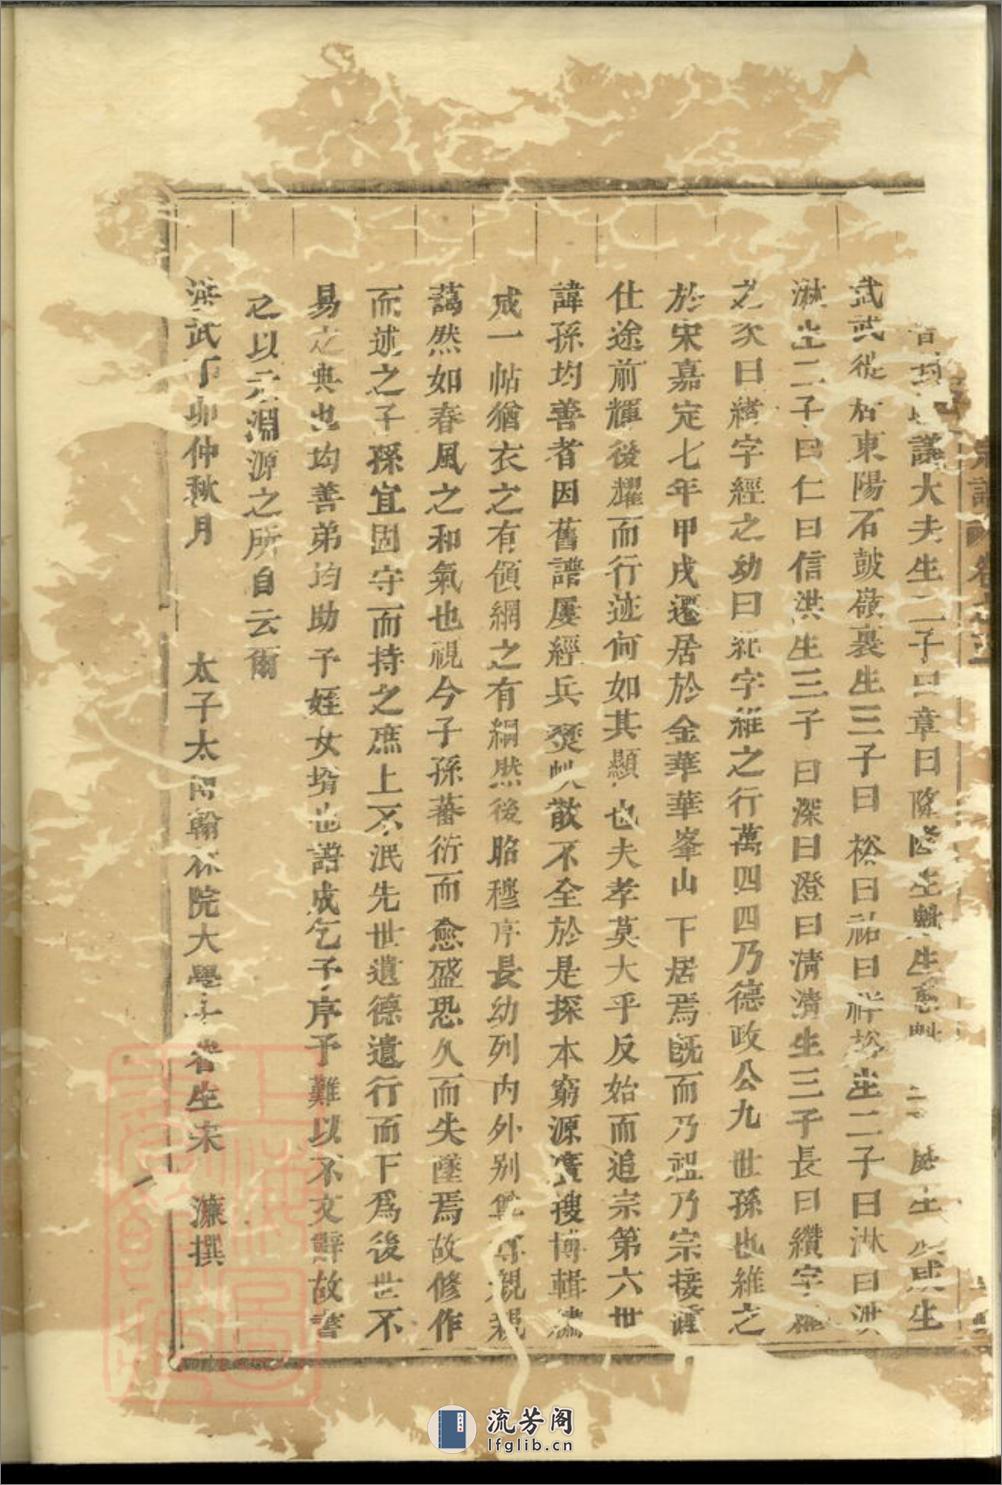 議大夫生二子曰章曰隆隆生 生 生 生
武武從居東陽石皷嶺裏生三子曰 松曰祐曰祥松生二子曰淋曰洪
淋生二子曰仁曰信洪生三子曰深曰澄曰清清生三子長曰纘字維
之次曰緒字經之幼曰 字維之行萬四四乃德政公九世孫也維之
於宋嘉定七年甲戌遷居於金華華峯山下居焉旣而乃祖乃宗接踵
仕途前輝後耀而行迹何如其顯也夫孝莫大乎反始而追宗第六世
諱孫均善者因舊譜屢經兵燹 散不全於是探本窮源廣搜博輯
成一帖猶衣之有領網之有綱然後昭穆序長幼列內外别 尊親親
藹然如春風之和氣也視今子孫蕃衍而愈盛恐久而失墜焉故修作
而述之子孫宜固守而持之庶上不泯先世遺德遺行而下爲後世不
易之典也均善弟均助予姪女壻也譜成乞予序予難以不文辭故書
之以元淵源之所自云爾
洪武丁卯仲秋月 太子太傅翰林院大學士 生宋 濂撰
宗譜 卷之
流芳阁
lfglib.cn